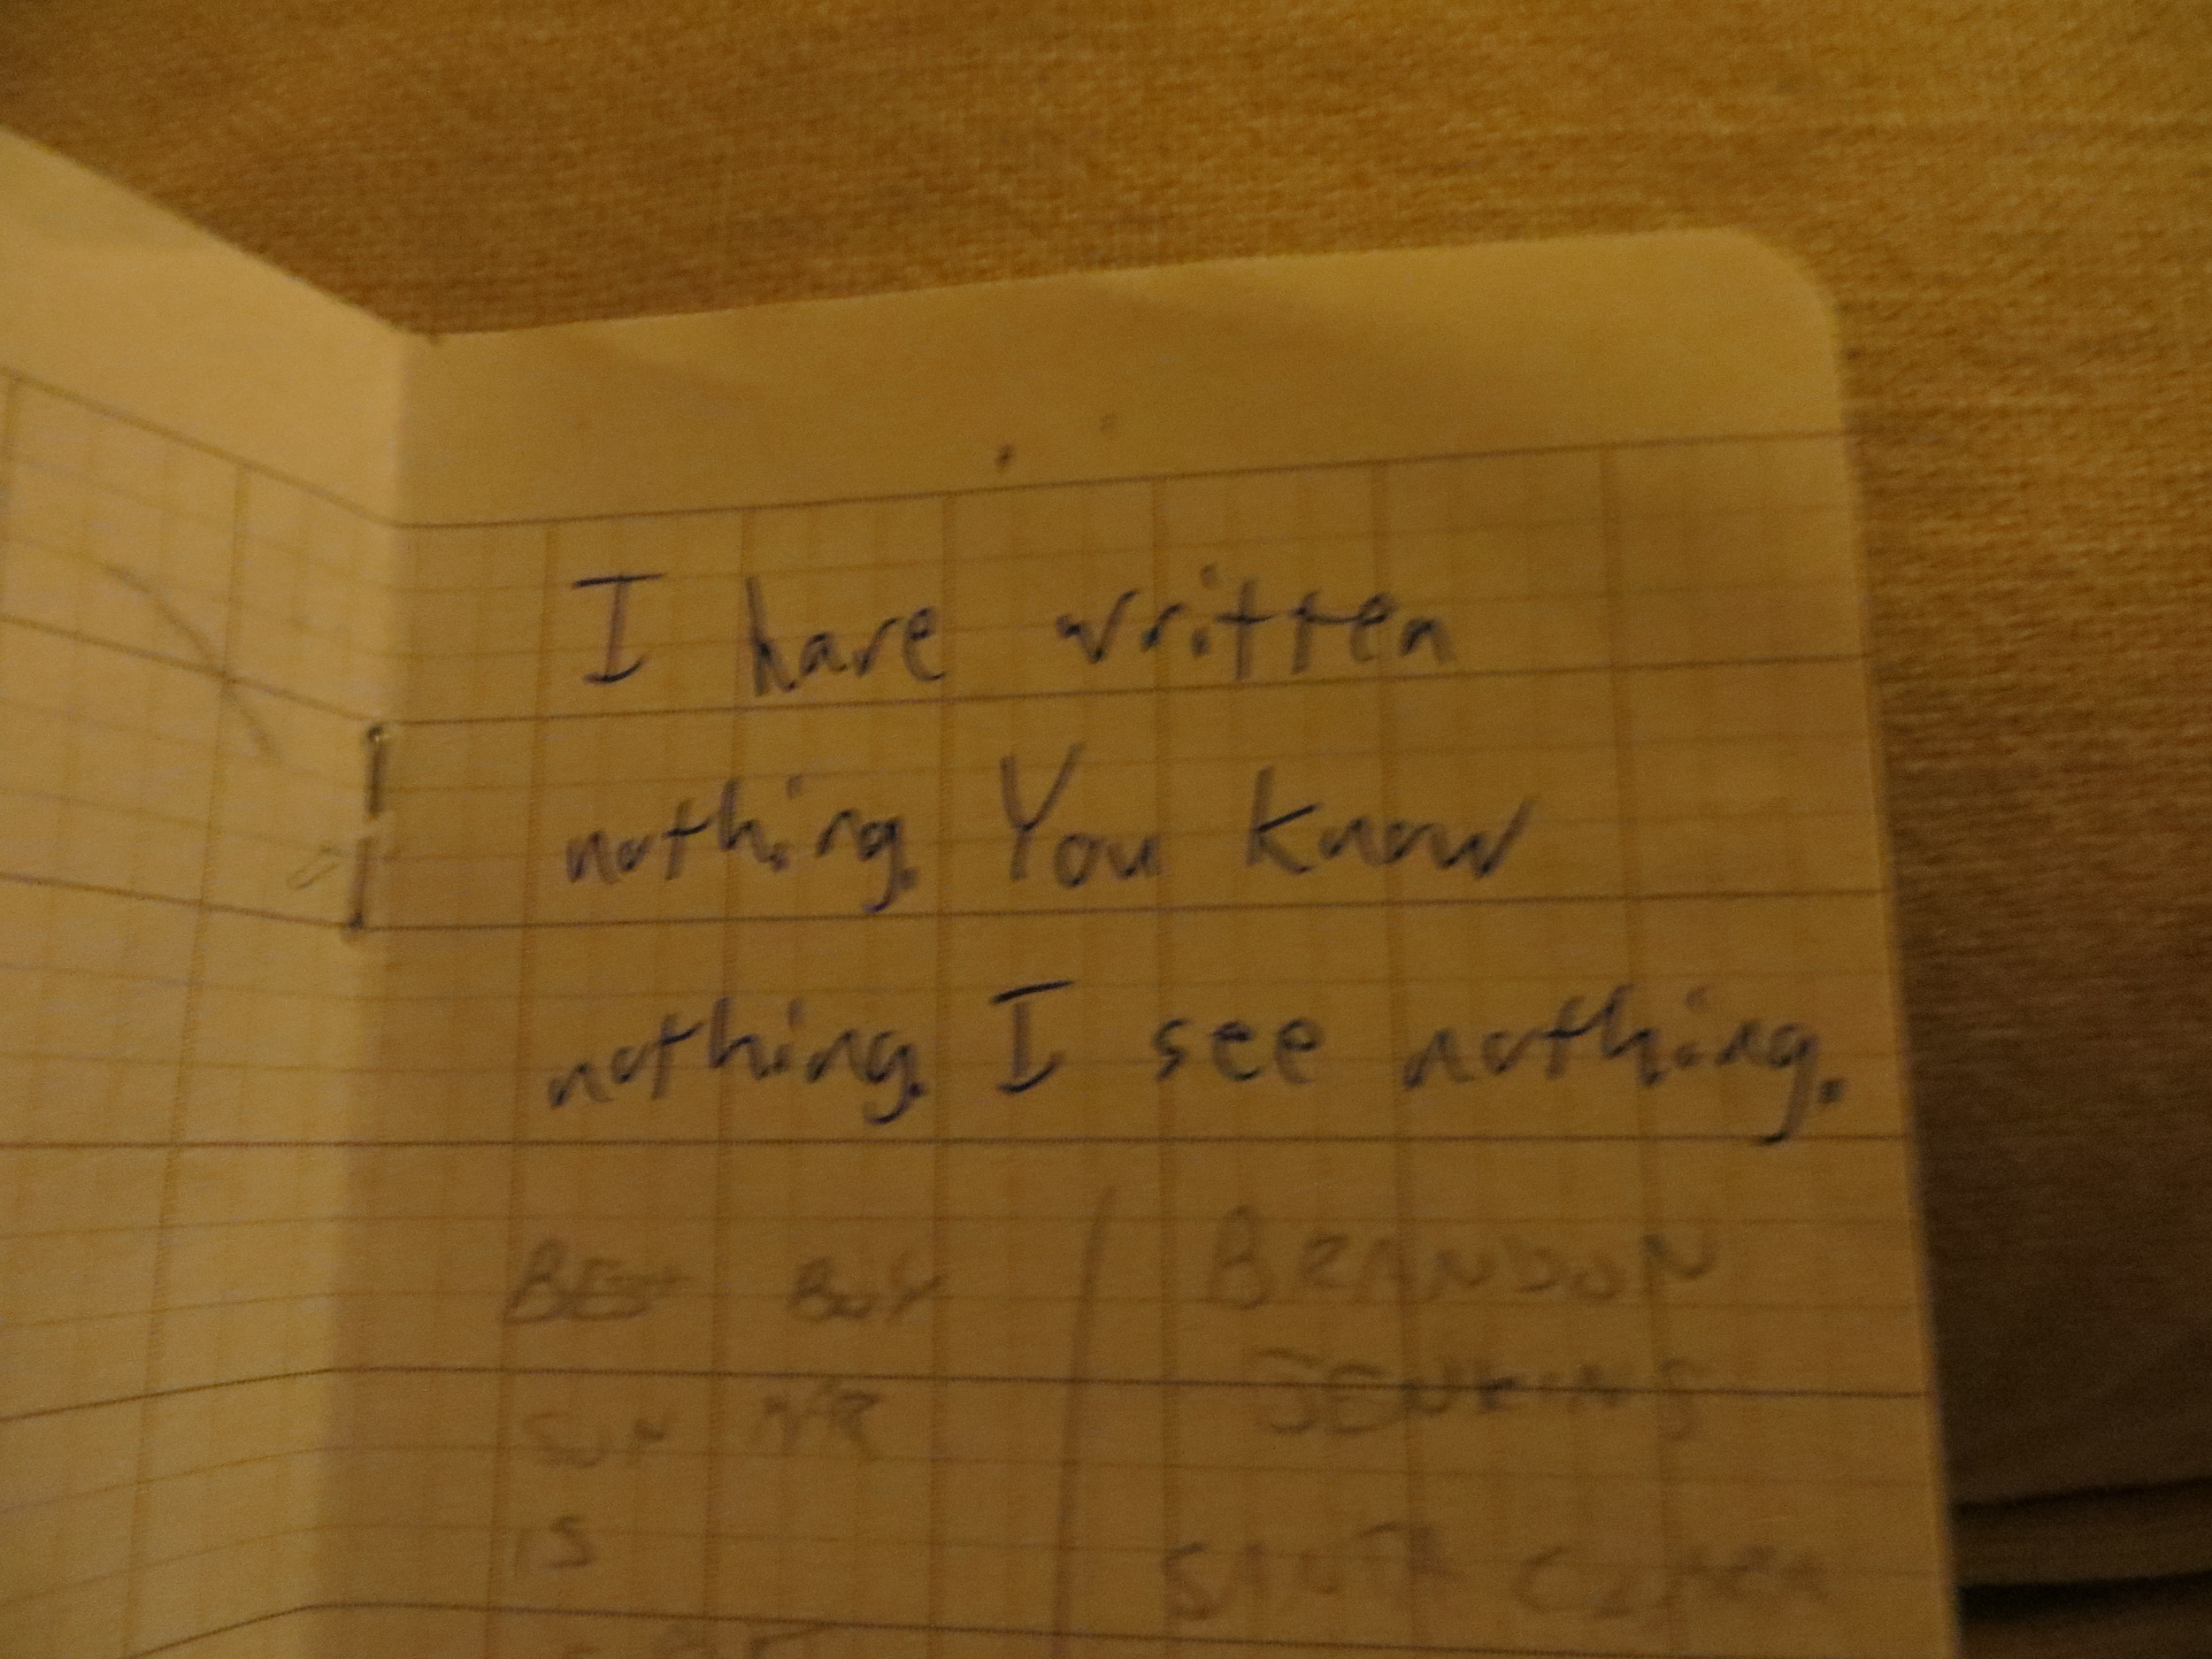 I have written
nothing. You know
nothing. I see nothing.
BEST BUY
BRANDON
JENKINS
SUN
IS
SANTA CLARA